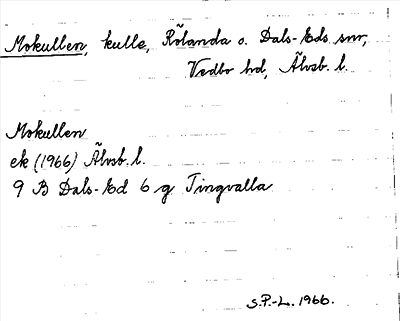 Mokullen, kulle, Rölanda o. Dals-Eds snr,
Vedbo hd, Älvsb. l.
Mokullen
ek (1966) Älvsb. l.
9 B Dals-Ed 6 g Tingvalla
S.P.-L. 1966.